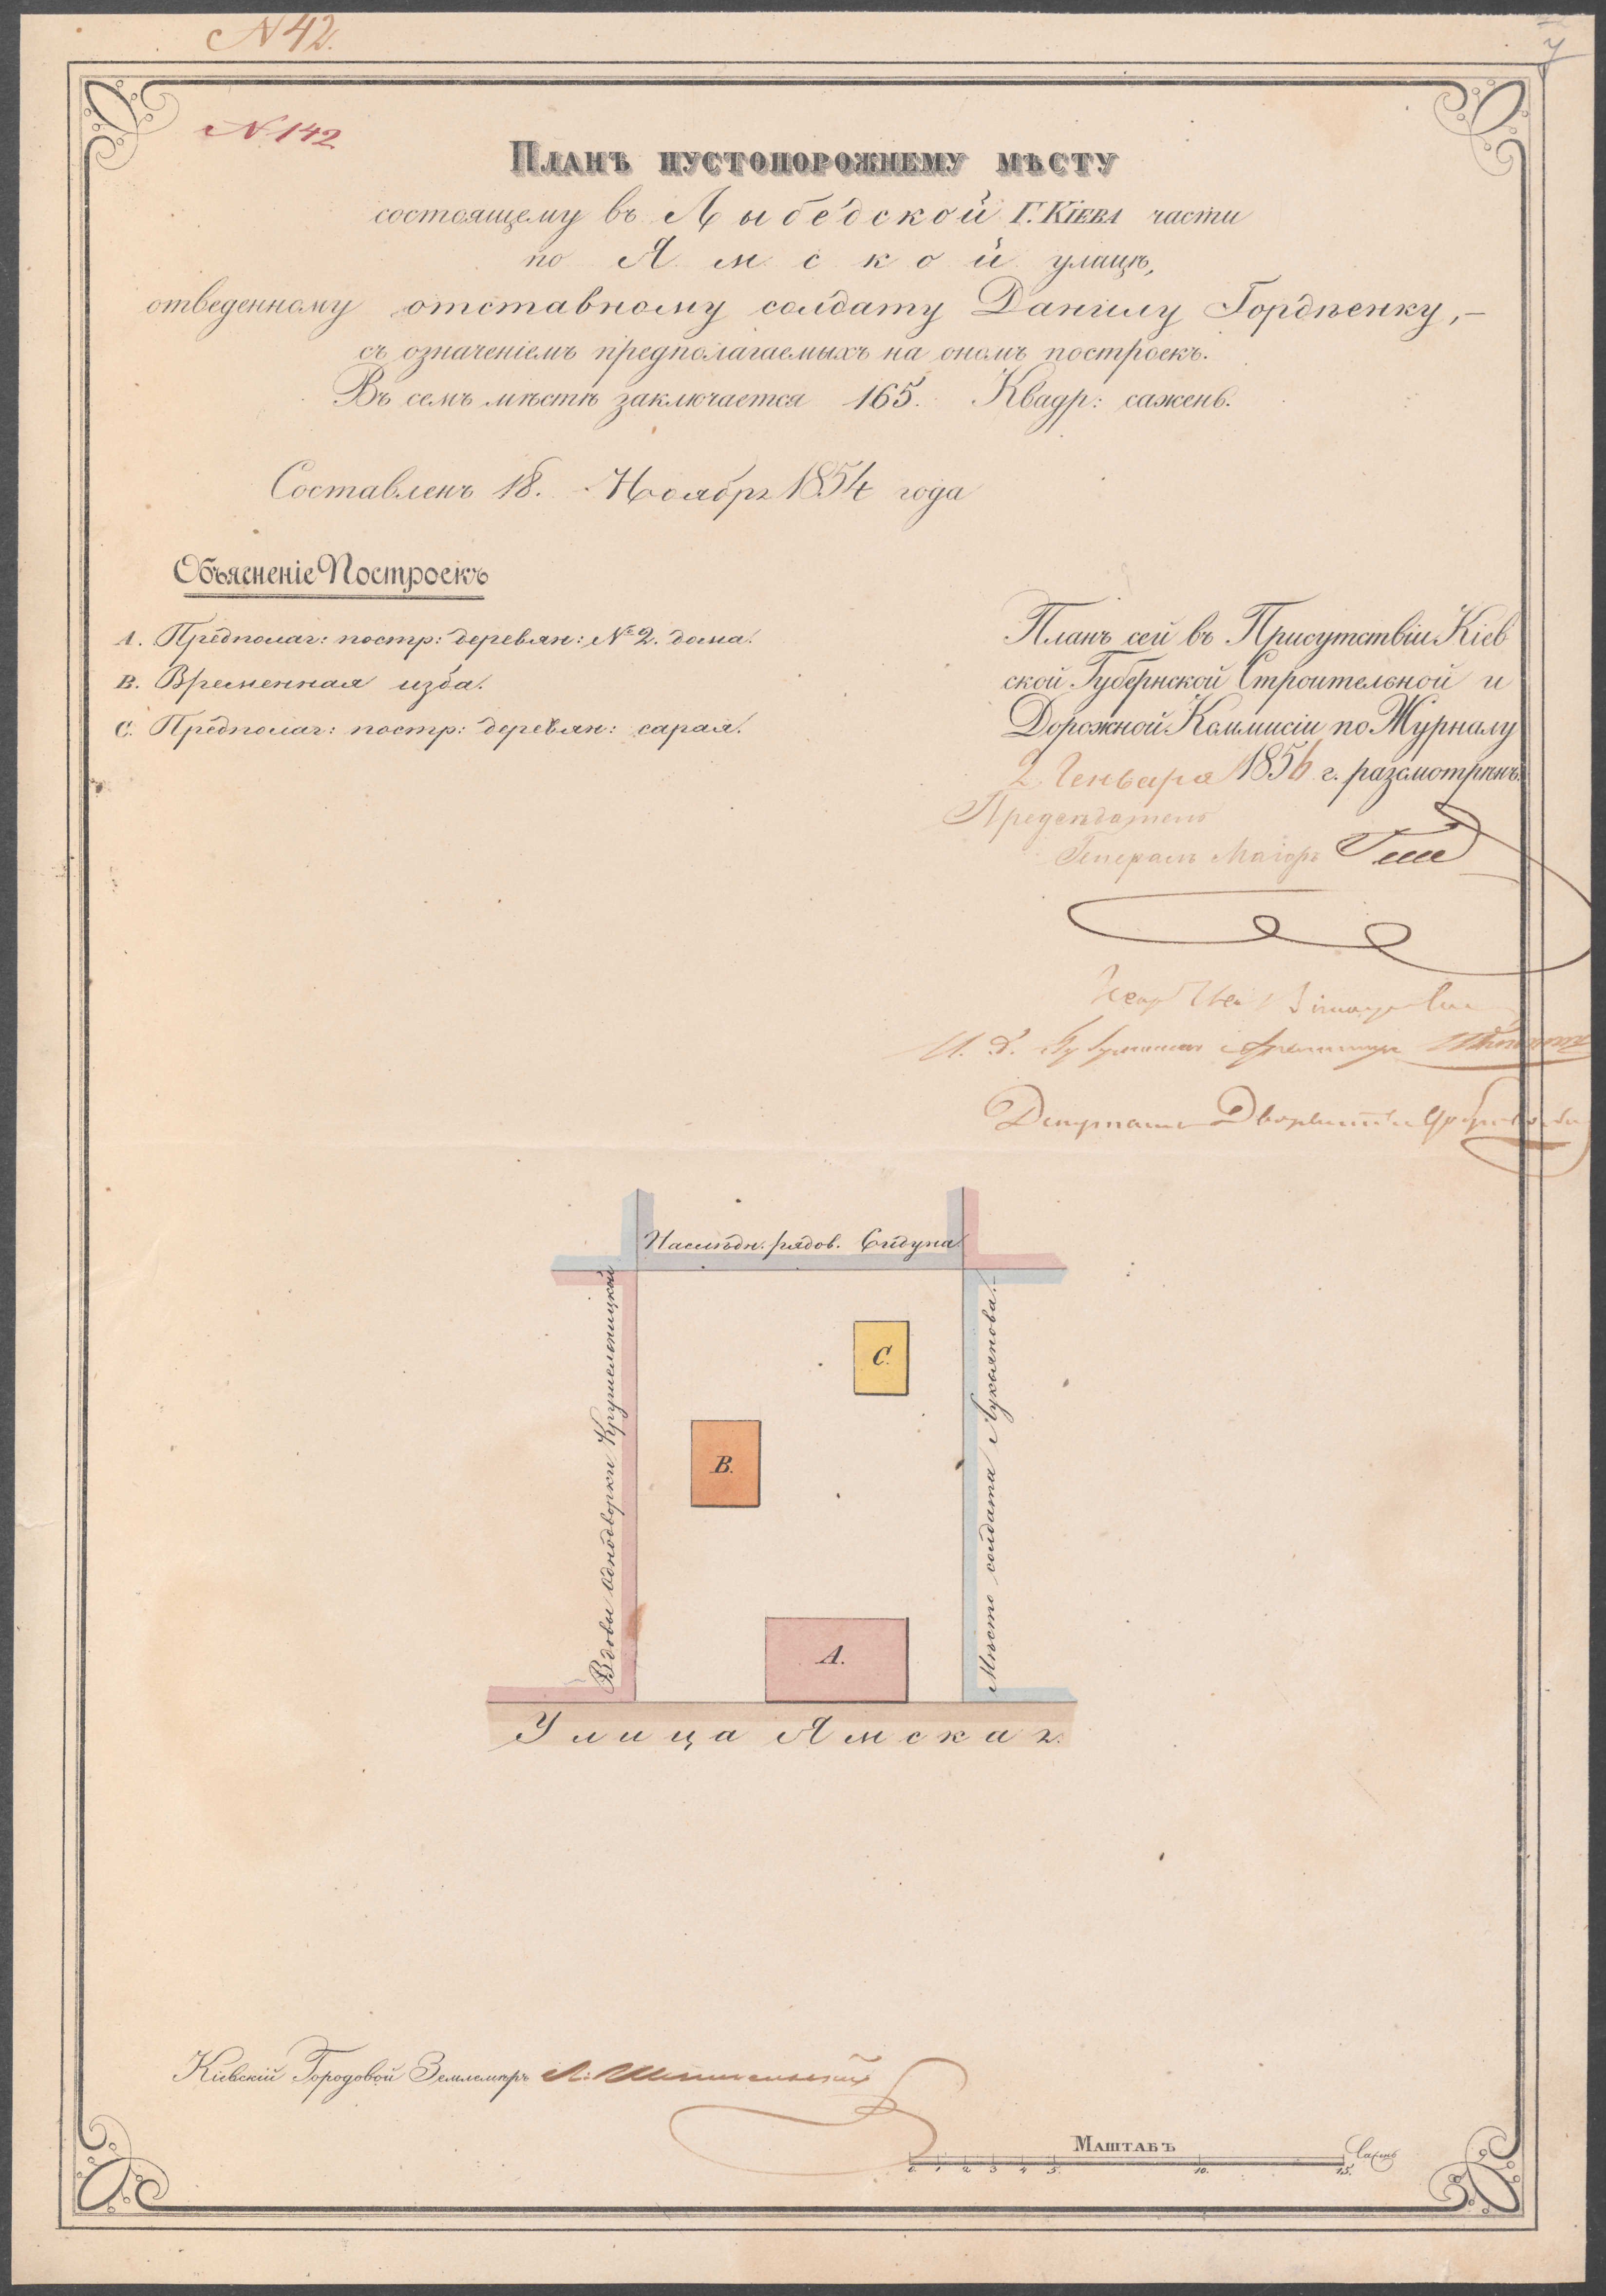 N 42.
N. 142
Планъ пустопорожнему мѣсту
состоящему въ Лыбедской Г. Кіева части
по Ямской улицѣ,
отведенному отставному солдату Данилу Гордѣенку,-
съ означеніемъ предполагаемыхъ на ономъ построекъ.
Въ семъ мѣстѣ заключается 165. Квадр: сажень.
Составленъ 18. Ноября 1854 года
Объясненіе Построекъ
А. Предполаг: постр: деревян: № 2. дома.
В. Временная изба.
С. Предполаг: постр: деревян: сарая.
Планъ сей въ Присутствіи Кіев
ской Губернской Строительной и
Дорожной Коммисіи по Журналу
2 Генваря 1856 г. разсмотрѣнъ.
Предсѣдатель
Генералъ Маіоръ
И. д. Губернскаго Архитектора
Депутатъ Дворянства
Наслѣдн. рядов. Сидуна
Вдовы однодворки Крушельницкой
Мѣсто солдата Лукьянова.
С.
В.
А.
Улица Ямская.
Кіевскій Городовой Землемѣръ
Маштабъ
0 1 2 3 4 5. 10. 15. Саж.